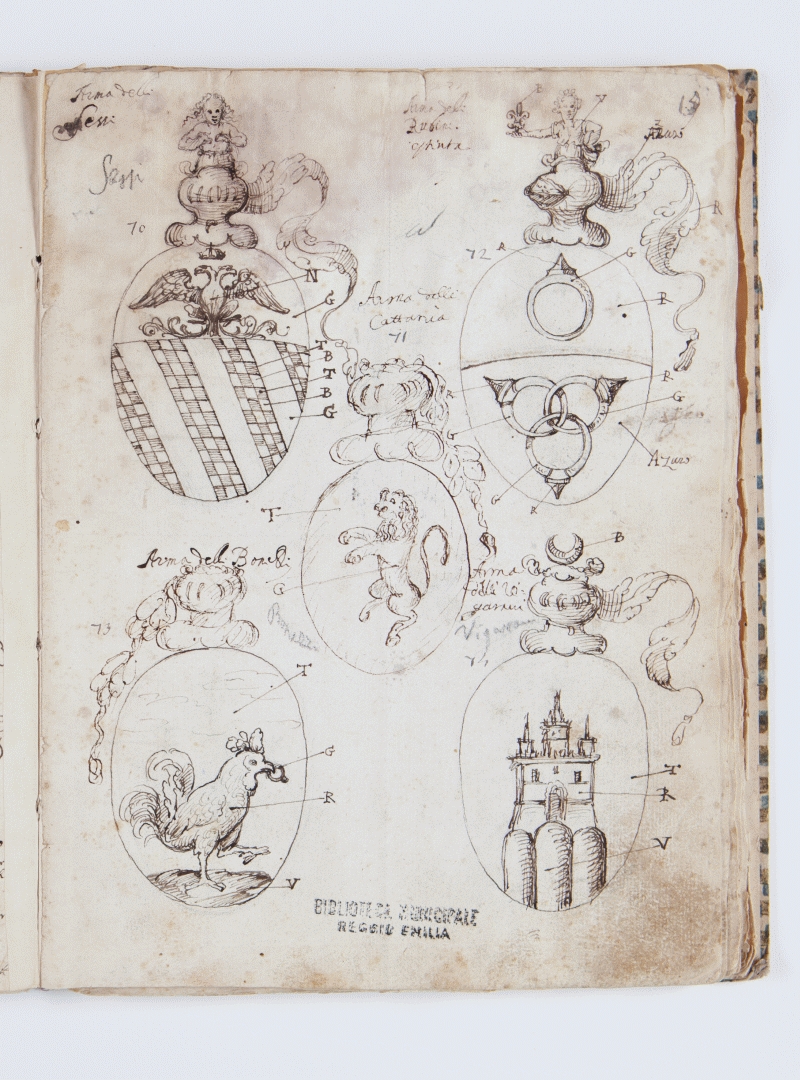 Arma delli
Sessi
Sessi
70
N
G
T
B
T
B
G
Arma delli
Rubini
estinta
15
V
Azuro
R
72
R
G
R
R
G
Azuro
G
R
Arma delli
Cattania
71
R
G
T
G
Arma deli Bonezi
Bonezzi
73
T
G
R
V
Arma
delli Vi
garani
Vigarani
B
T
R
V
BIBLIOTECA MUNICIPALE
REGGIO EMILIA